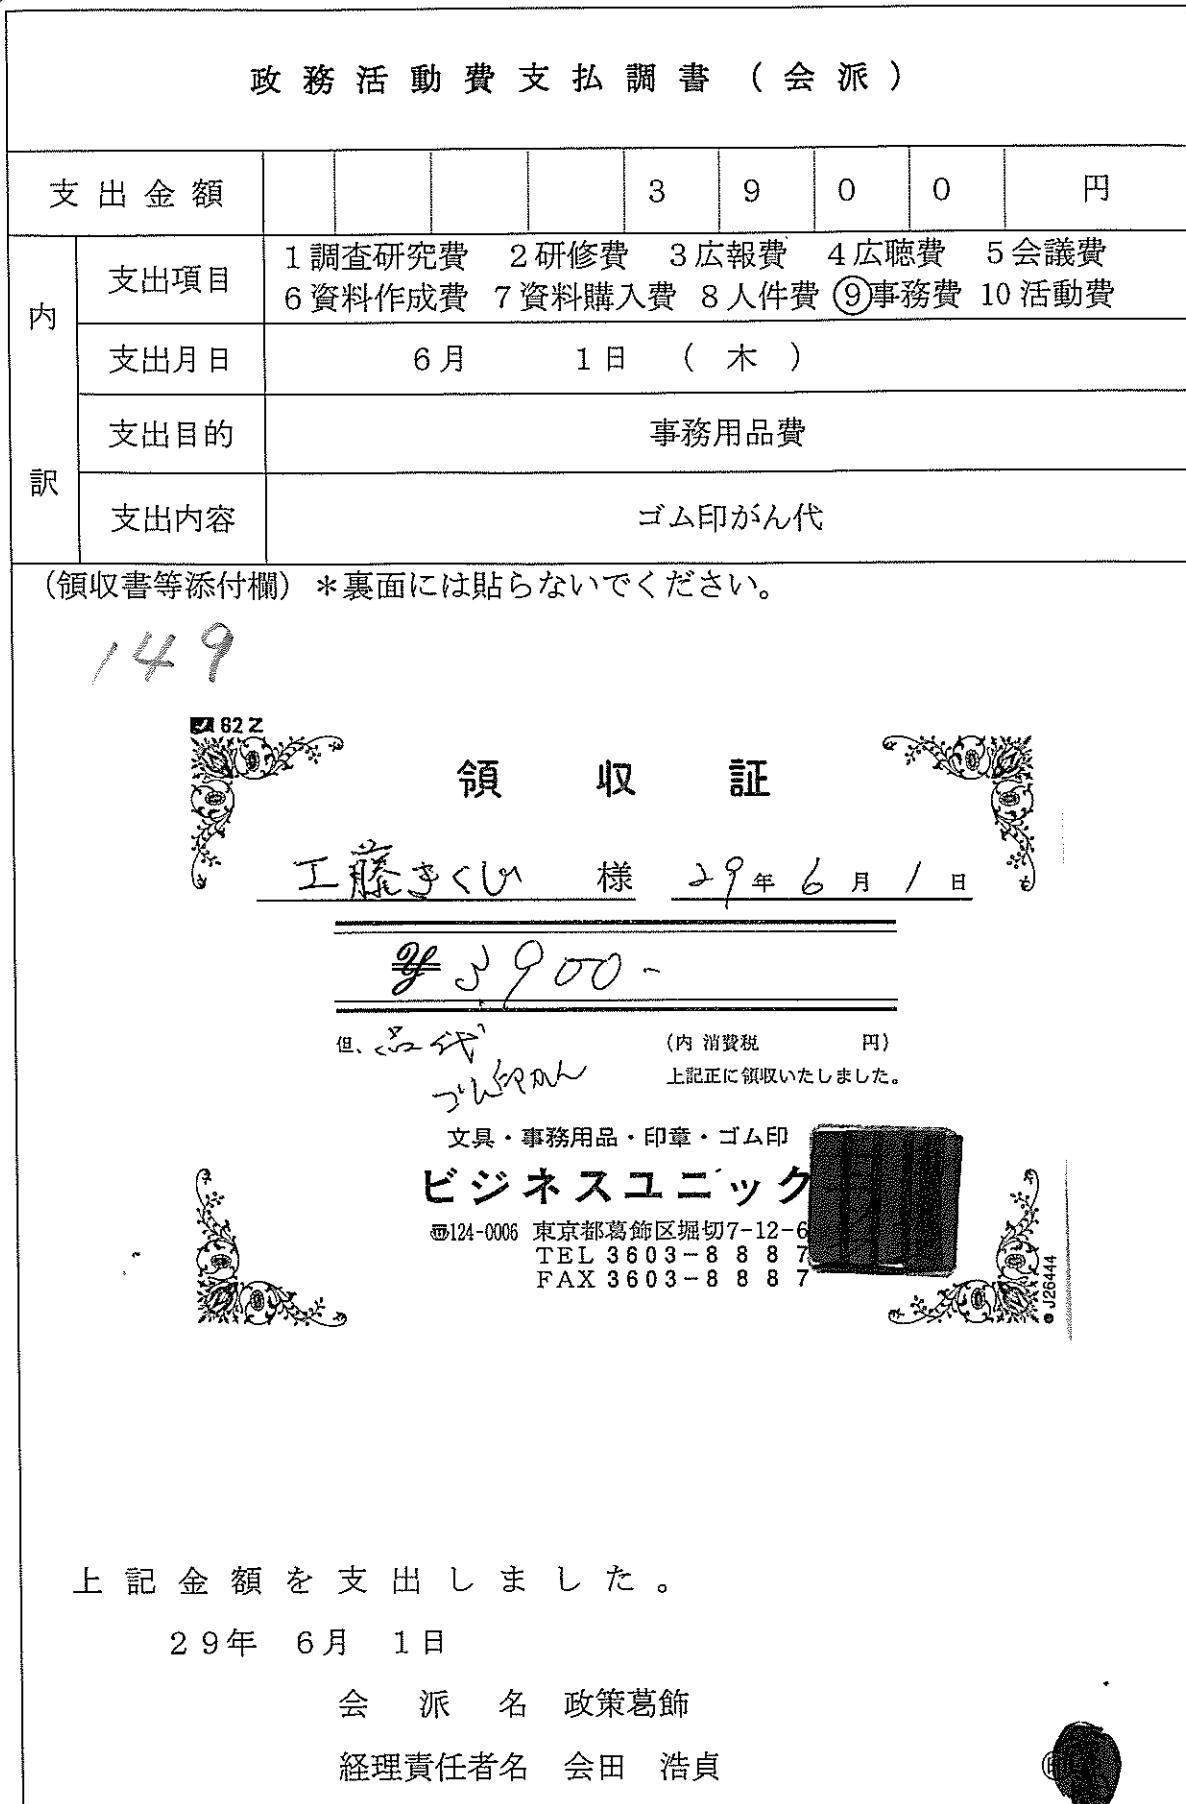 政務活動費支払調書（会派）
支出金額 3900円
内訳
支出項目 1調査研究費 2研修費 3広報費 4広聴費 5会議費
6資料作成費 7資料購入費 8人件費 ⑨事務費 10活動費
支出月日 6月 1日 (木)
支出目的 事務用品費
支出内容 ゴム印がん代
(領収書等添付欄) ＊裏面には貼らないでください。
149
62Z
領収証
工藤きくじ 様 29年6月1日
¥3900-
但、品代 (内 消費税 円)
ゴム印がん 上記正に領収いたしました。
文具・事務用品・印章・ゴム印
ビジネスユニック
〠124-0006 東京都葛飾区堀切7-12-6
TEL 3603-8887
FAX 3603-8887
J26444
上記金額を支出しました。
29年 6月 1日
会派名 政策葛飾
経理責任者名 会田 浩貞